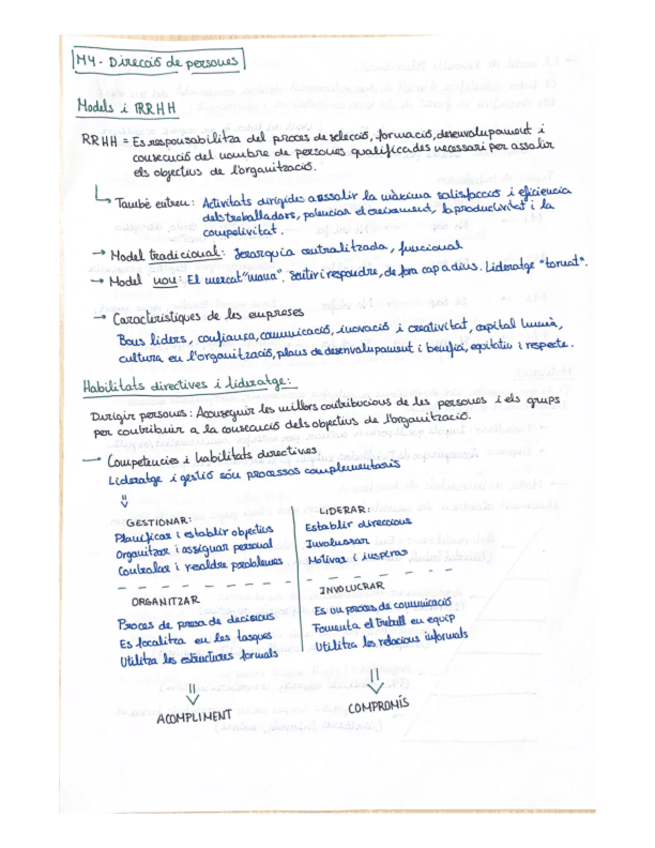 M4 - Direcció de persones
Models i RRHH
RRHH = Es responsabilitza del procés de selecció, formació, desenvolupament i
consecució del nombre de persones qualificades necessari per assolir
els objectius de l'organització.
També entren: Activitats dirigides a assolir la màxima satisfacció i eficiencia
dels treballadors, potenciar el creixement, la productivitat i la
competivitat.
→ Model tradicional: Jerarquia centralitzada, funcional
→ Model nou: El mercat "mana". Sentir i respondre, de fora cap a dins. Lideratge "tornat".
→ Característiques de les empreses
Bons líders, confiança, comunicació, inovació i creativitat, capital humà,
cultura en l'organització, plans de desenvolupament i benefici, equitatiu i respecte.
Habilitats directives i lideratge:
Dirigir persones: Aconseguir les millors contribucions de les persones i els grups
per contribuir a la consecució dels objectius de l'organització.
→ Competencies i habilitats directives.
Lideratge i gestió són processos complementaris
GESTIONAR:
Planificar i establir objectius
Organitzar i assignar personal
Controlar i resoldre problemes
LIDERAR:
Establir direccions
Involucrar
Motivar i inspirar
ORGANITZAR
Procés de presa de decisions
Es focalitza en les tasques
Utilitza les estructures formals
INVOLUCRAR
Es un procés de comunicació
Fomenta el treball en equip
Utilitza les relacions informals
ACOMPLIMENT
COMPROMÍS